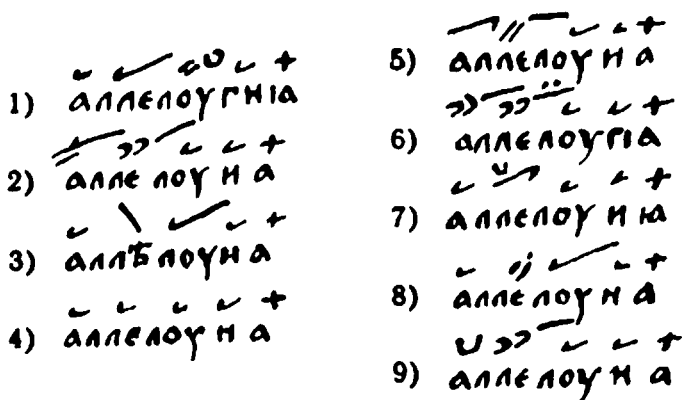 1) аллелоугиꙗ
2) аллелоуиа
3) аллѣлоуиа
4) аллелоуиа
5) аллелоуиа
6) аллелоугіа
7) аллелоуиꙗ
8) аллелоуиа
9) аллелоуиа